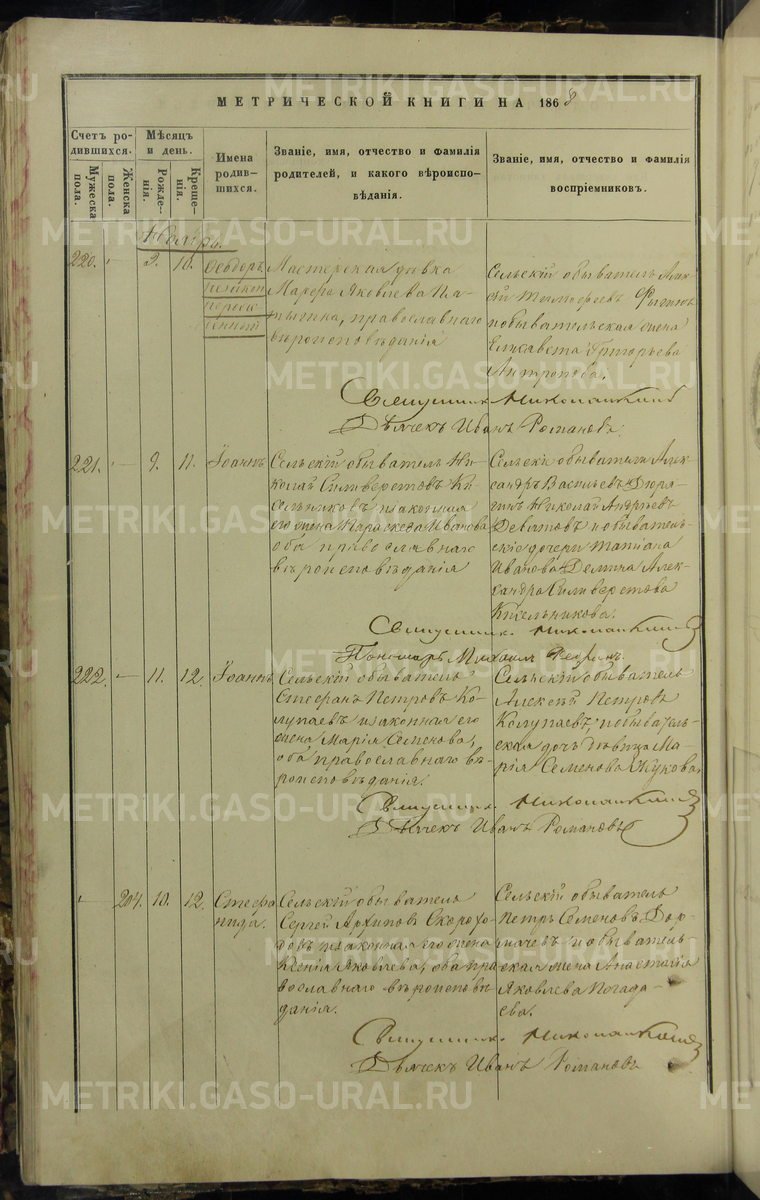 МЕТРИЧЕСКОЙ КНИГИ НА 1868
Счетъ родившихся.
Мужеска пола.
Женска пола.
Мѣсяцъ и день.
Рожденія.
Крещенія.
Имена родившихся.
Званіе, имя, отчество и фамилія
родителей, и какого вѣроиспо-
вѣданія.
Званіе, имя, отчество и фамилія
воспріемниковъ.
Ноября
220. 9. 10. Ѳеодоръ
Мастерская дѣвка
Яковлева
православнаго
вѣроисповѣданія
Сельскій обыватель Алек-
сѣй
и обывательская жена
Елисавета Григорьева
Антропова.
Священникъ
Дьячекъ Иванъ Романовъ.
221. 9. 11. Іоаннъ
Сельскій обыватель Ни-
колай Силиверстовъ Ки-
сельниковъ и законная
его жена Параскева Иванова
оба православнаго
вѣроисповѣданія
Сельскіе обыватели Алек-
сандръ Васильевъ
Николай Андреевъ
и обыватель-
скіе дочери Татіана
Иванова Алек-
сандра Силиверстова
Кисельникова.
Священникъ
Пономарь Михаилъ
222. 11. 12. Іоаннъ
Сельскій обыватель
Стефанъ Петровъ Ко-
лупаевъ и законная его
жена Марія Семенова,
оба православнаго вѣ-
роисповѣданія.
Сельскій обыватель
Алексѣй Петровъ
Колупаевъ, и обыватель-
ская дочь дѣвица Ма-
рія Семенова Жукова.
Священникъ
Дьячекъ Иванъ Романовъ
204. 10. 12. Стефа-
нида.
Сельскій обыватель
Сергей Архиповъ Скорохо-
довъ и законная его жена
Ксенія Яковлева, оба пра-
вославнаго вѣроисповѣ-
данія.
Сельскій обыватель
Петръ Семеновъ
и обыватель-
ская жена Анастасія
Яковлева Погада-
ева.
Священникъ
Дьячекъ Иванъ Романовъ
METRIKI.GASO-URAL.RU